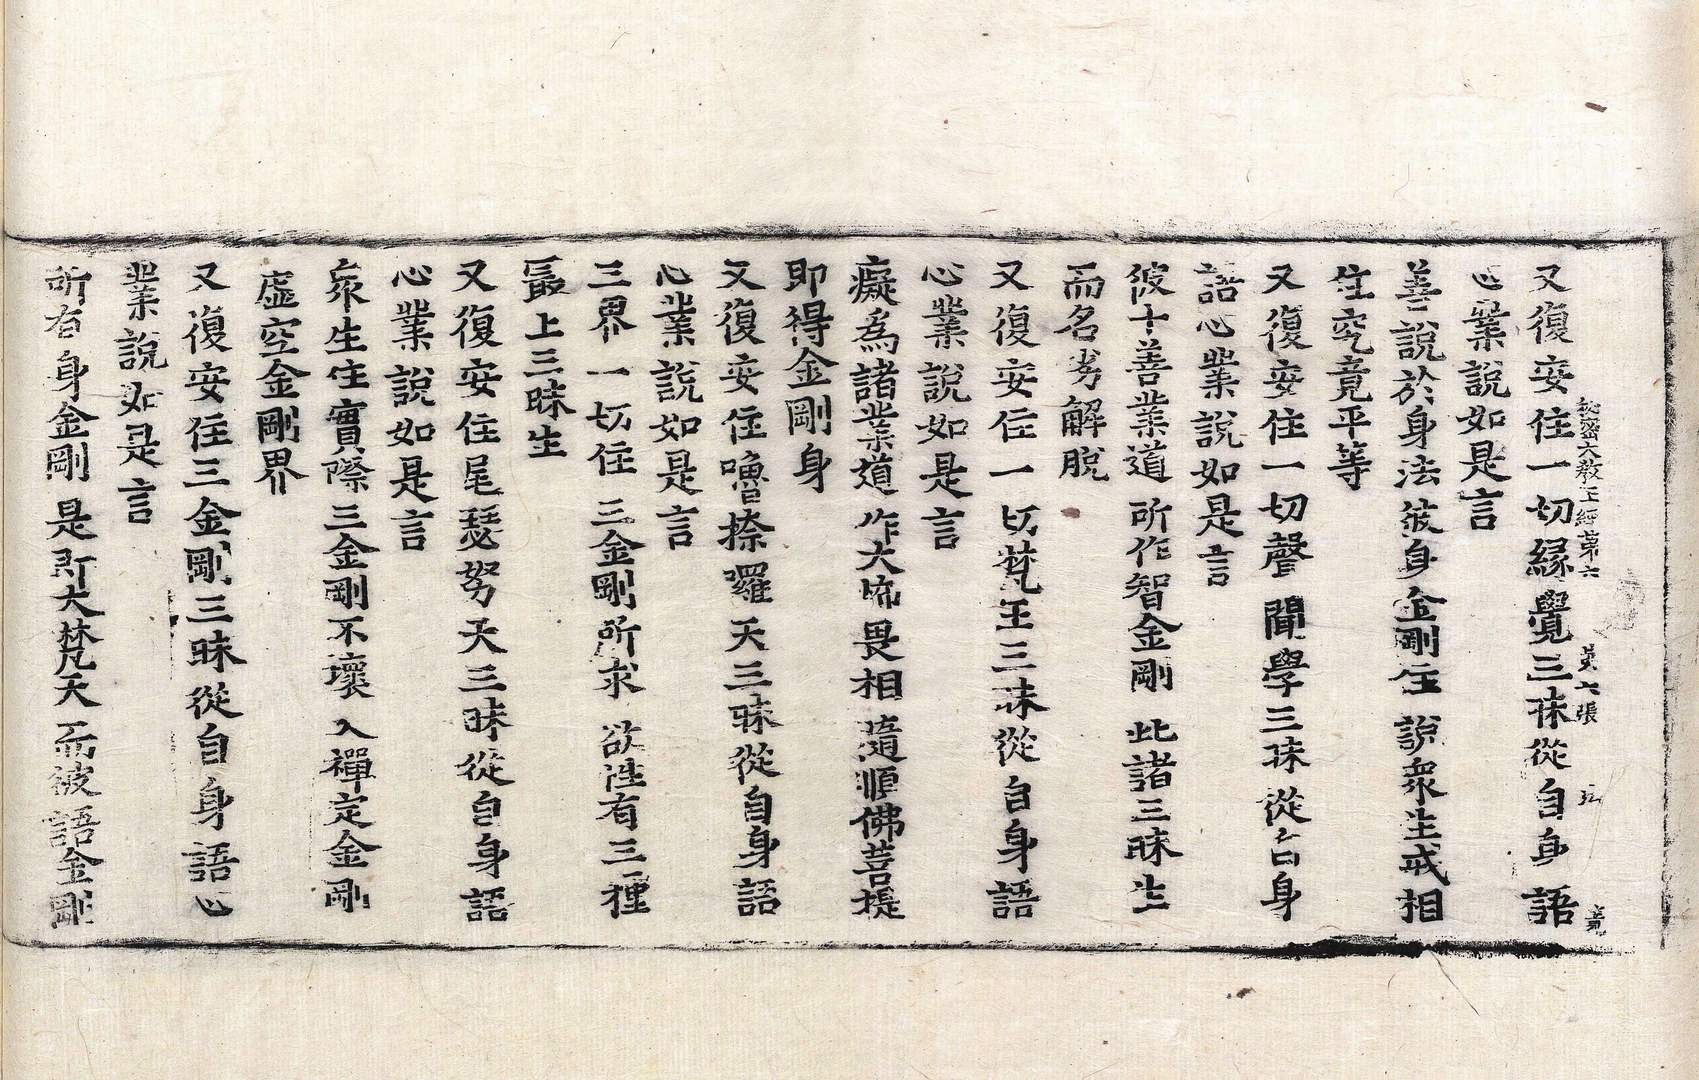 秘密大教王經第六　第七張　弘
又復安住一切緣覺三昧從自身語
心業說如是言
善說於身法　彼身金剛住　說衆生戒相
住究竟平等
又復安住一切聲聞學三昧從自身
語心業說如是言
彼十善業道　所作智金剛　此諸三昧生
而名劣解脫
又復安住一切梵王三昧從自身語
心業說如是言
癡為諸業道　作大怖畏相　隨順佛菩提
即得金剛身
又復安住嚕捺囉天三昧從自身語
心業說如是言
三界一切住　三金剛所求　欲性有三種
最上三昧生
又復安住尾瑟努天三昧從自身語
心業說如是言
衆生住實際　三金剛不壞　入禪定金剛
虛空金剛界
又復安住三金剛三昧從自身語心
業說如是言
所有身金剛　是即大梵天　而彼語金剛